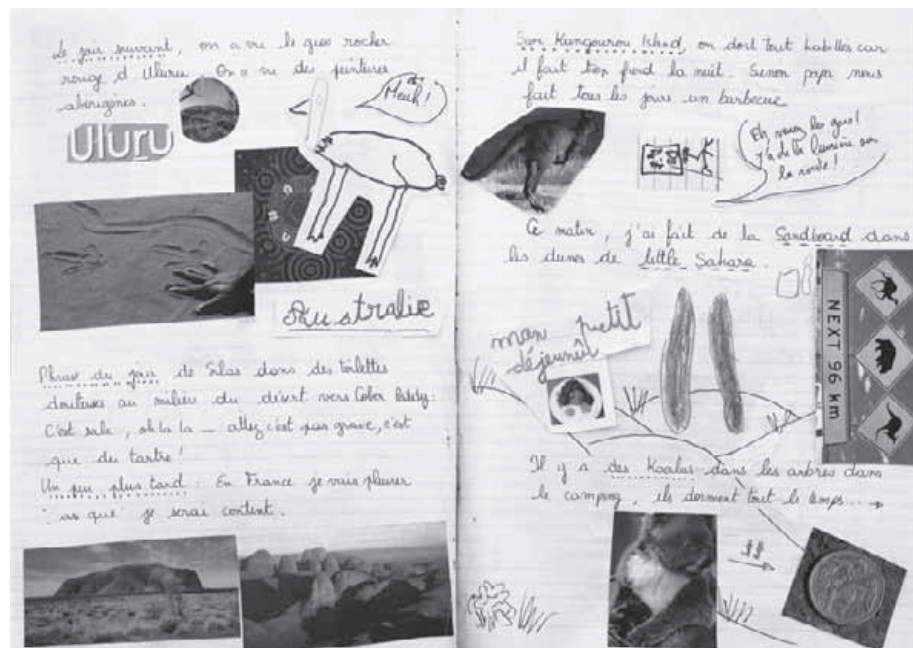 Le jour suivant, on a vu le gros rocher
rouge d'Uluru. On a vu des peintures
aborigènes.
Meuh!
Uluru
EMU
Australie
Phrase du jour de Silas dans des toilettes
douteuses au milieu du désert vers Cober Peddy:
C'est sale, oh la la _ allez c'est pas grave, c'est
que du tartre!
Un peu plus tard: En France je vais pleurer
"as que" je serai content.
Sur Kangourou Island, on dort tout habillés car
il fait trop froid la nuit. Sinon papa nous
fait tous les jours un barbecue.
Eh venez les gus!
y'a de la lumière sur
la route!
Ce matin, j'ai fait de la Sandboard dans
les dunes de little Sahara.
NEXT 96 km
mon petit
déjeunût
Il y a des Koalas dans les arbres dans
le camping, ils dorment tout le temps...
$$